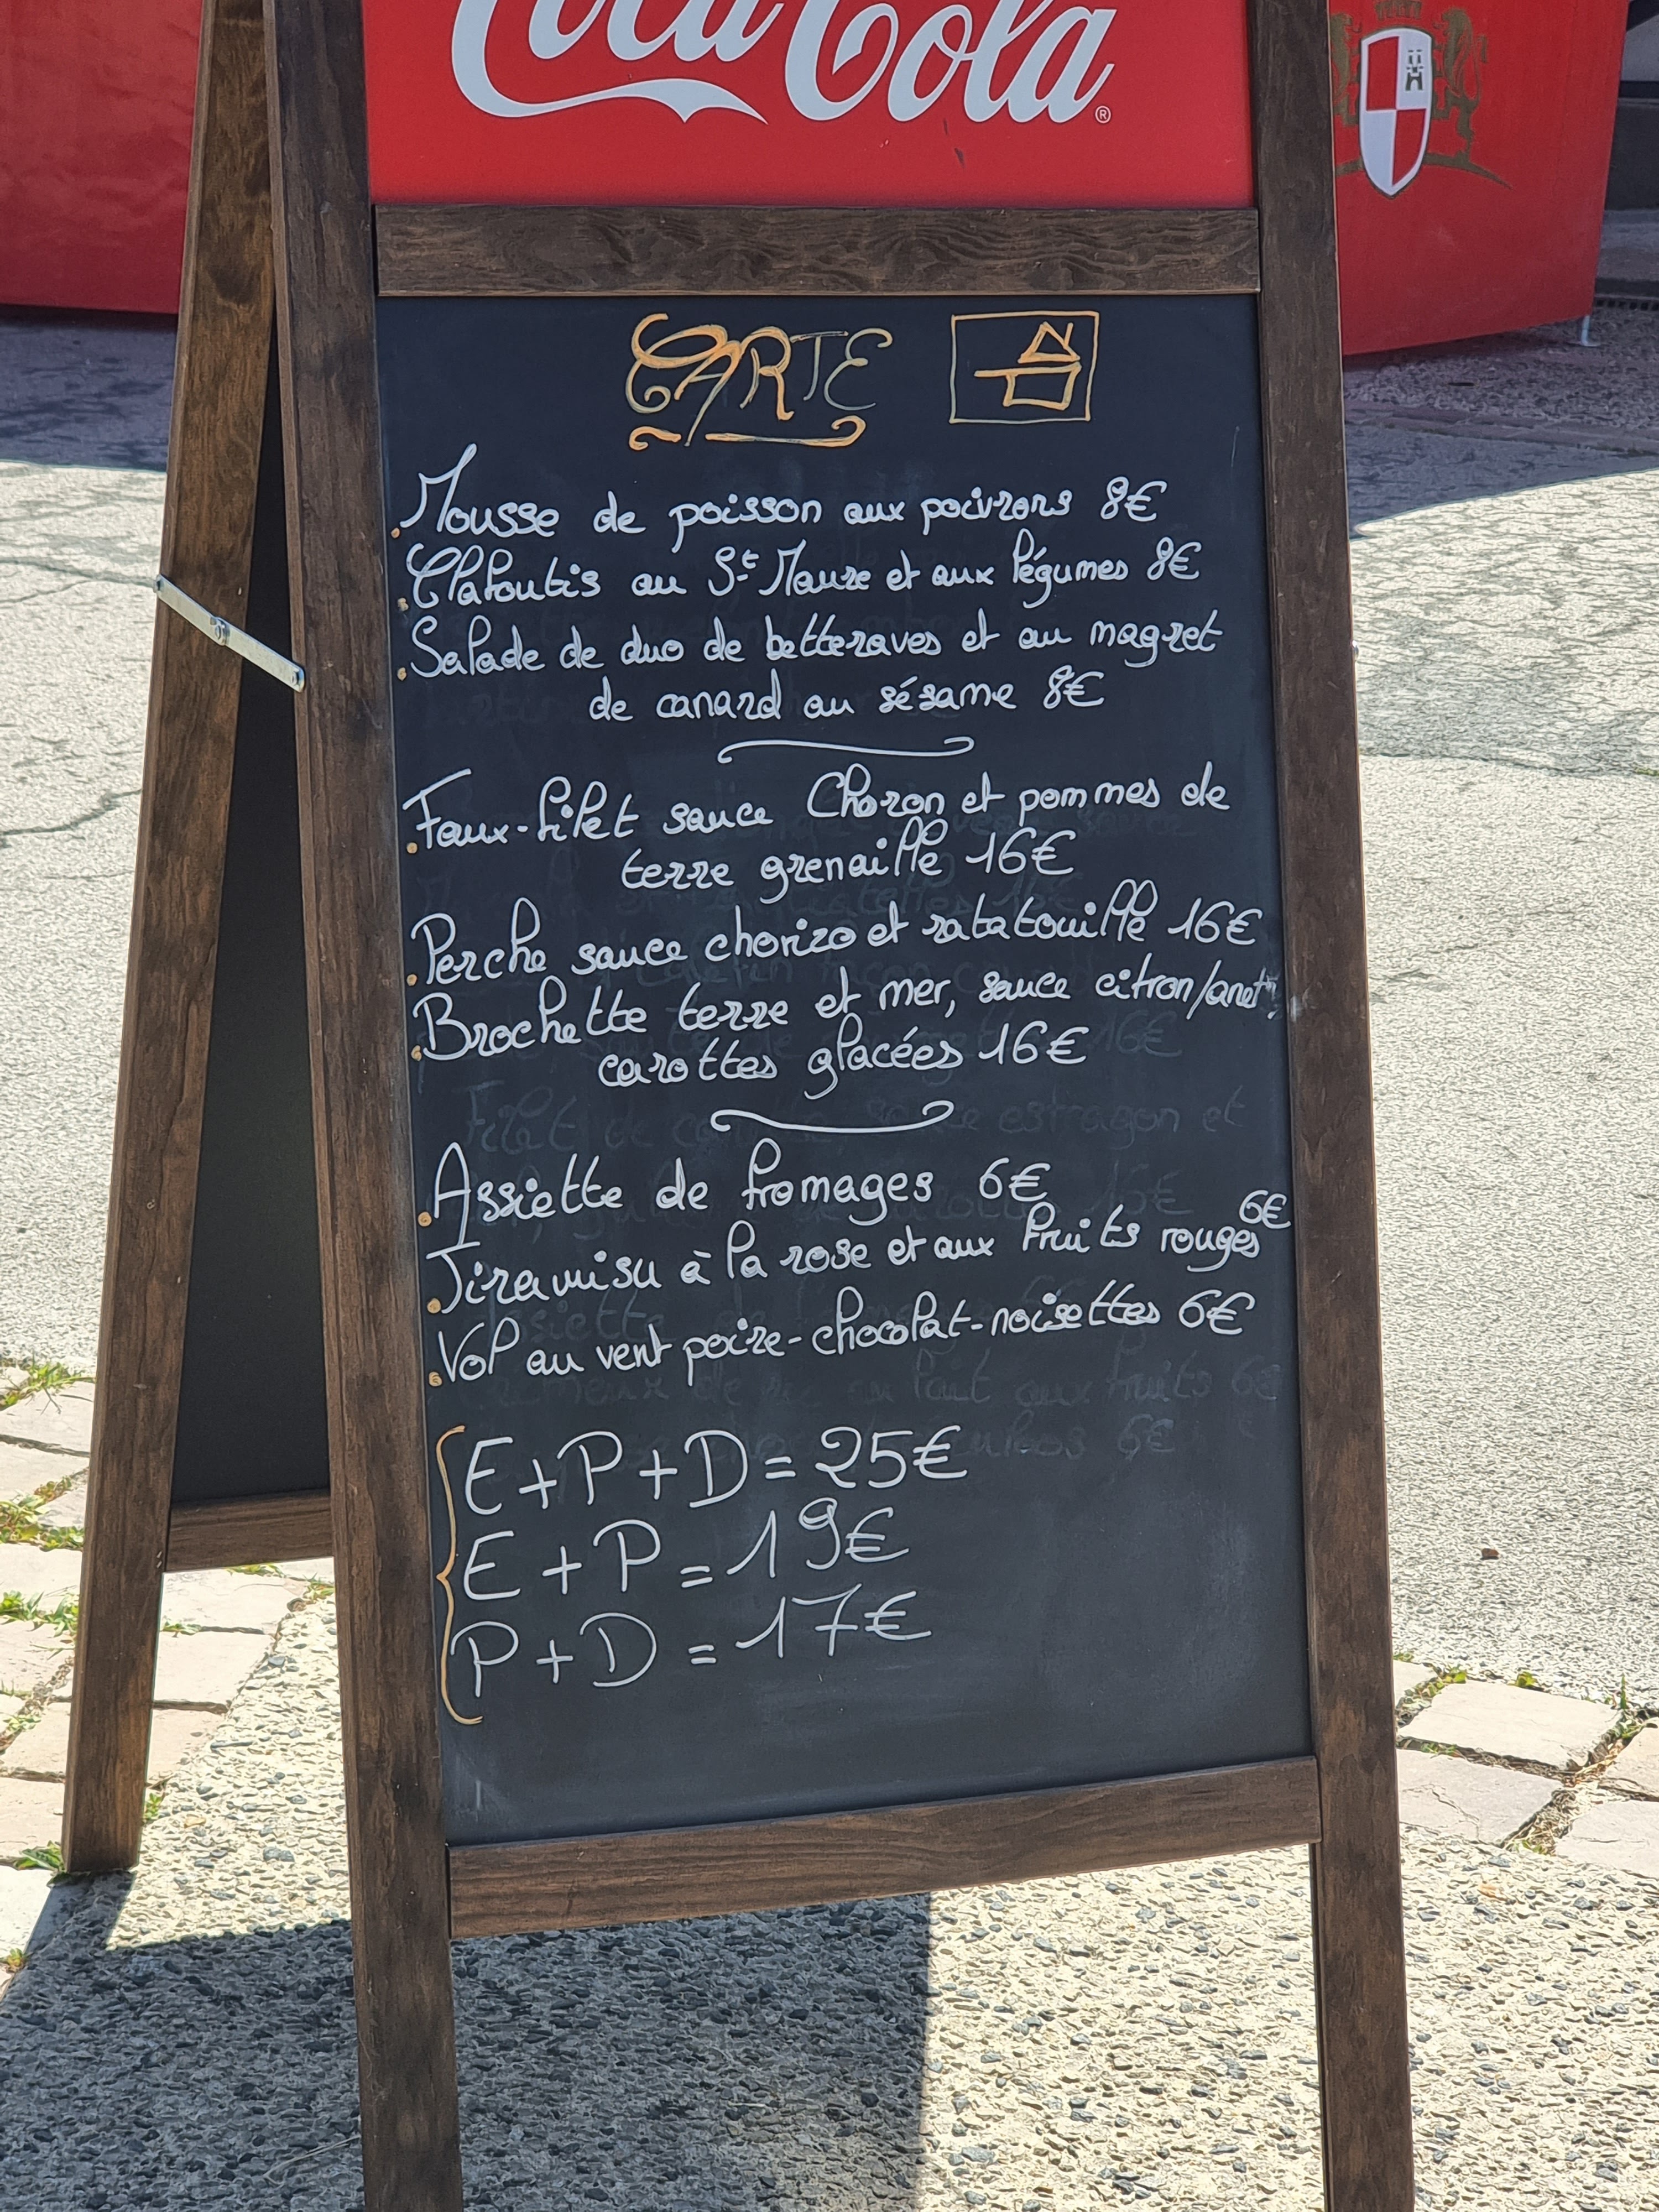 Coca Cola
®
CARTE
. Mousse de poisson aux poivrons 8€
. Clafoutis au St Maure et aux légumes 8€
. Salade de duo de betteraves et au magret
de canard au sésame 8€
. Faux-filet sauce Choron et pommes de
terre grenaille 16€
. Perche sauce chorizo et ratatouille 16€
. Brochette terre et mer, sauce citron/aneth,
carottes glacées 16€
. Assiette de fromages 6€
. Tiramisu à la rose et aux fruits rouges 6€
. Vol au vent poire-chocolat-noisettes 6€
E+P+D=25€
E+P=19€
P+D=17€